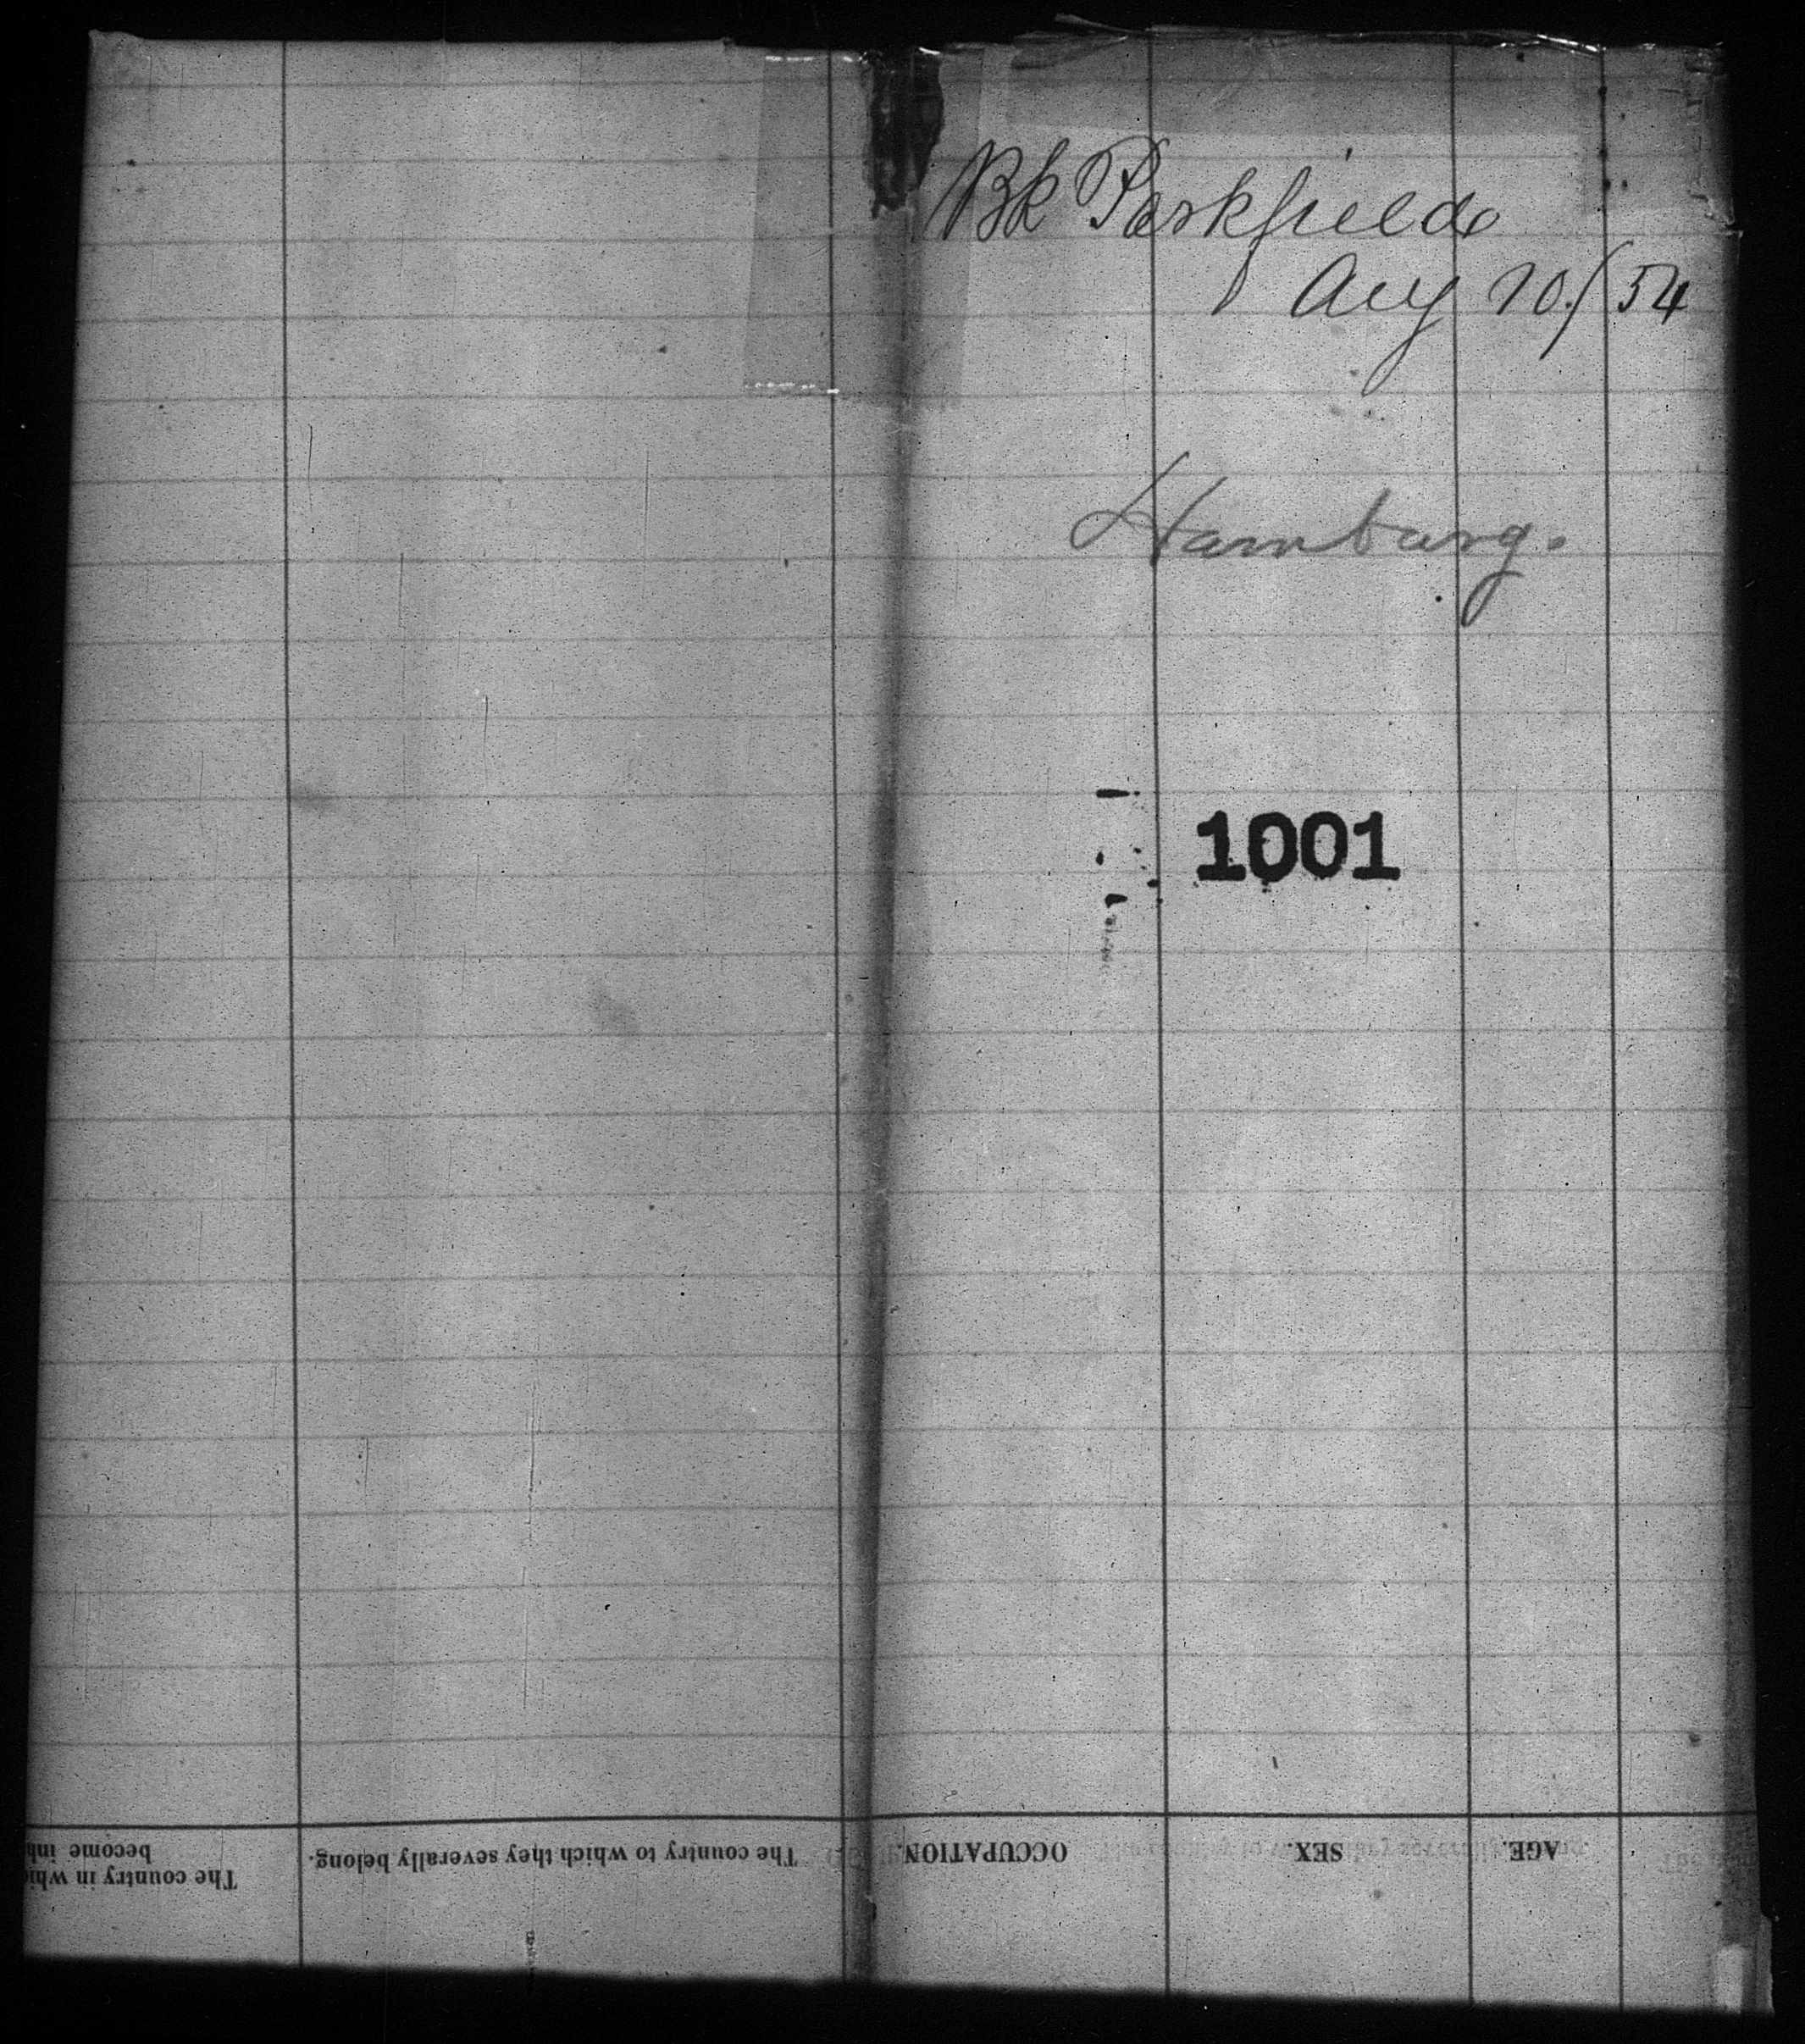 Bk Parkfield
Aug 10/54
Hamburg.
1001
AGE.
SEX.
OCCUPATION.
The country to which they severally belong.
The country in whi
become inh